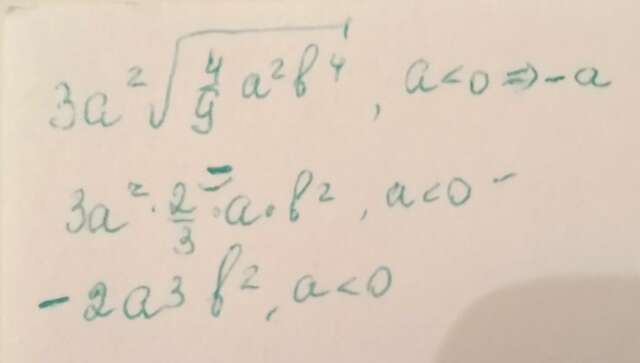 3a²√(4/9 a²b⁴), a<0 ⇒ -a
3a² · 2/3 · a · b², a<0 -
- 2a³b², a<0